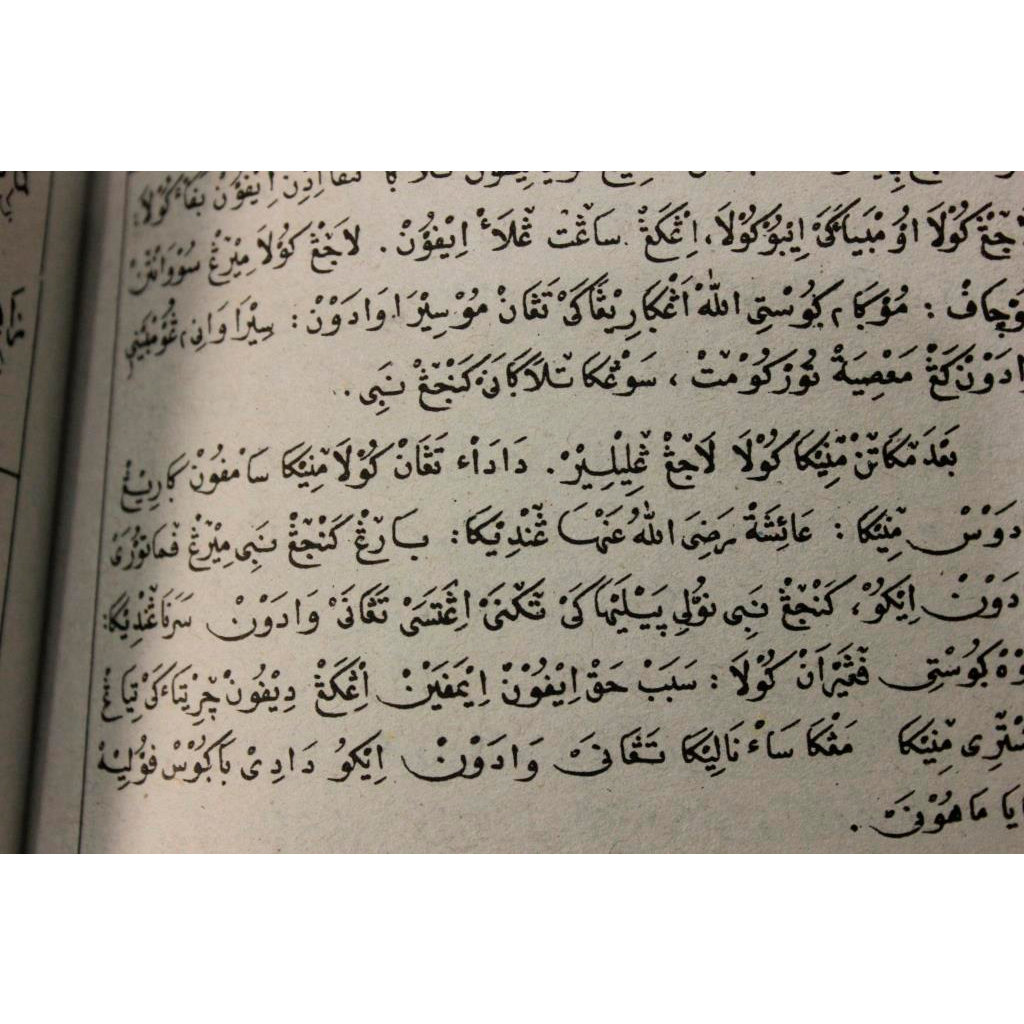 اِيْفُوْنْ بَڤَاءْ كَوُلَا،
جَڠْ كَوُلَا اَوُمْبَيَاڬَكَيْ اِيْبُوْ كَوُلَا، اِڠْكَڠْ سَاڠَتْ ڠَلَاءْ اِيْفُوْنْ. لَاجَڠْ كَوُلَا مِيْرَڠْ سُوْوَانْتَنْ
وْچَافْ: مُوْڬَام ڬُوْسْتِي اللهْ اَڠْڬَارِيْڠَاكَيْ تَڠَانْ مُوْ سِيْرَا وَادَوْنْ: سِيْرَا وَانِي
ادَوْنْ كَڠْ مَعْصِيَةْ تُوْرْ كَوُمَتْ، سَوْڠْكَا تْلَاڬَانَيْ كَنْجَڠْ نَبِي.
بَعْدَ مَكَاتَنْ مَنِيْكَا كَوُلَا لَاجَڠْ ڠْلِيْلِيْرْ. دَادَاءْ تَڠَانْ كَوُلَا مَنِيْكَا سَامْفُوْنْ ڬَارِيْڠْ
دَوْسْ مَنِيْكَا: عَائِشَةْ رَضِيَ اللهُ عَنْهَا ڠَنْدِيْكَا: بَارَڠْ كَنْجَڠْ نَبِي مِيْرَڠْ فَمَاتُوْرَيْ
دَوْنْ اِيْكُوْ، كَنْجَڠْ نَبِي نُوْلِي ... تَكَنَيْ اِڠْتَسَيْ تَڠَانَيْ وَادَوْنْ سَرَنَا ڠَنْدِيْكَا:
وْهْ ڬُوْسْتِي فَڠَيْرَانْ كَوُلَا: سَبَبْ حَقْ اِيْفُوْنْ اِيْمْفَيْنْ اِڠْكَڠْ دِيْفُوْنْ چَرِيْتَاءَكَيْ تِيَاڠْ
سْتْرِي مَنِيْكَا مَڠْكَا سَاءْ نَالِيْكَا تَڠَانَيْ وَادَوْنْ اِيْكُوْ دَادِيْ بَاڬُوْسْ فُوْلِيْهْ
يَا مَاهُوْنَيْ.